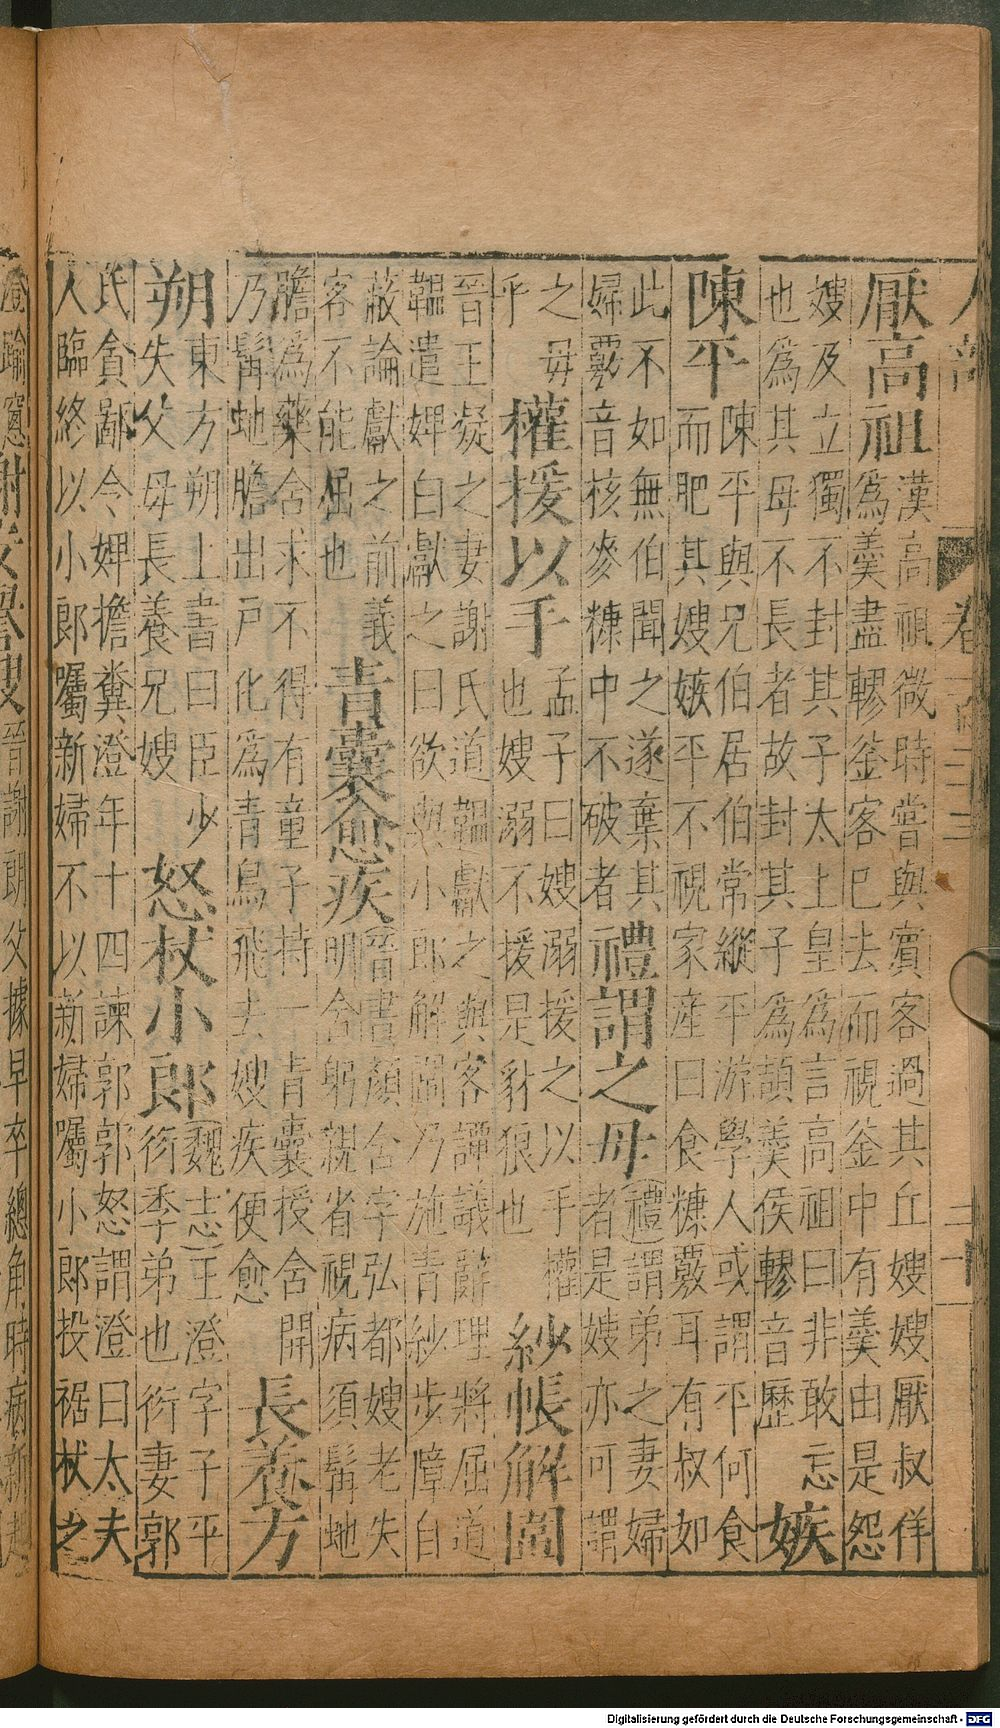 人部 卷
厭高祖
漢高祖微時嘗與賓客過其丘嫂嫂厭叔佯
為羹盡轑釜客已去而視釜中有羹由是怨
嫂及立獨不封其子太上皇為言高祖曰非敢忘
也為其母不長者故封其子為頡羹侯轑音歷
嫉
陳平
陳平與兄伯居伯常縱平游學人或謂平何食
而肥其嫂嫉平不視家産曰食糠覈耳有叔如
此不如無伯聞之遂棄其
婦覈音核麥糠中不破者
禮謂之母
禮謂弟之妻婦
者是嫂亦可謂
之母
乎
權援以手
孟子曰嫂溺援之以手權
也嫂溺不援是豺狼也
紗帳解圍
晉王凝之妻謝氏道韞獻之與客譚議辭理將屈道
韞遣婢白獻之曰欲與小郎解圍乃施青紗步障自
蔽論獻之前義
客不能屈也
青囊愈疾
晉書顏含字弘都嫂老失
明含躬親省視病須髯虵
膽為藥含求不得有童子持一青囊授含開
乃髯虵膽出戶化為青鳥飛去嫂疾便愈
長養方
朔
東方朔上書曰臣少
失父母長養兄嫂
怒杖小郎
魏志王澄字子平
衍季弟也衍妻郭
氏貪鄙令婢擔糞澄年十四諫郭郭怒謂澄曰太夫
人臨終以小郎囑新婦不以新婦囑小郎投裾杖之
澄踰窻
嫂
晉謝朗父據早卒總角時病新起
Digitalisierung gefördert durch die Deutsche Forschungsgemeinschaft - DFG